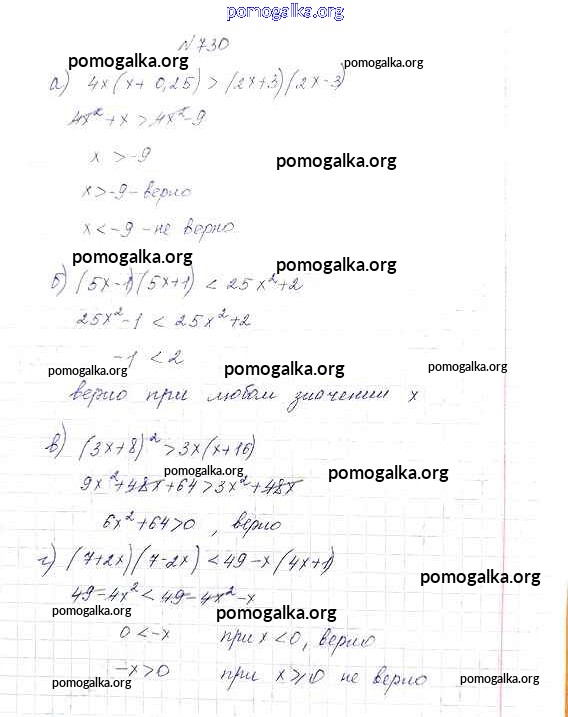 pomogalka.org
№730
pomogalka.org pomogalka.org
а) 4x(x+0,25)>(2x+3)(2x-3)
4x²+x>4x²-9
x>-9 pomogalka.org
x>-9 - верно
x<-9 - не верно
pomogalka.org pomogalka.org
б) (5x-1)(5x+1)<25x²+2
25x²-1<25x²+2
-1<2
pomogalka.org pomogalka.org pomogalka.org
верно при любом значении x
в) (3x+8)²>3x(x+16)
pomogalka.org pomogalka.org
9x²+48x+64>3x²+48x
6x²+64>0, верно
г) (7+2x)(7-2x)<49-x(4x+1)
pomogalka.org
49-4x²<49-4x²-x
pomogalka.org pomogalka.org
0<-x при x<0, верно
-x>0 при x⩾0 не верно
pomogalka.org pomogalka.org pomogalka.org